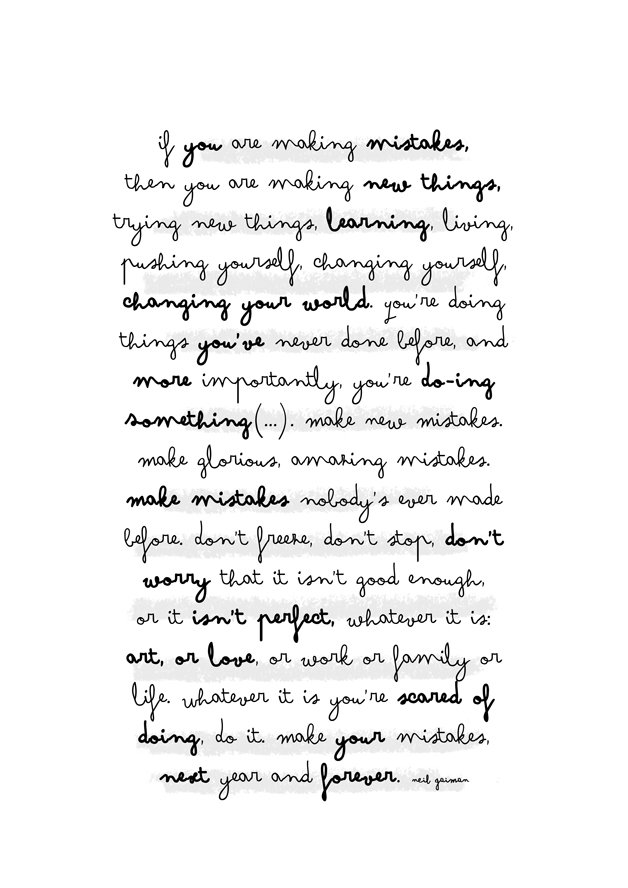 if you are making mistakes,
then you are making new things,
trying new things, learning, living,
pushing yourself, changing yourself,
changing your world. you're doing
things you've never done before, and
more importantly, you're do-ing
something(...). make new mistakes.
make glorious, amazing mistakes.
make mistakes nobody's ever made
before. don't freeze, don't stop, don't
worry that it isn't good enough,
or it isn't perfect, whatever it is:
art, or love, or work or family or
life. whatever it is you're scared of
doing, do it. make your mistakes,
next year and forever. neil gaiman